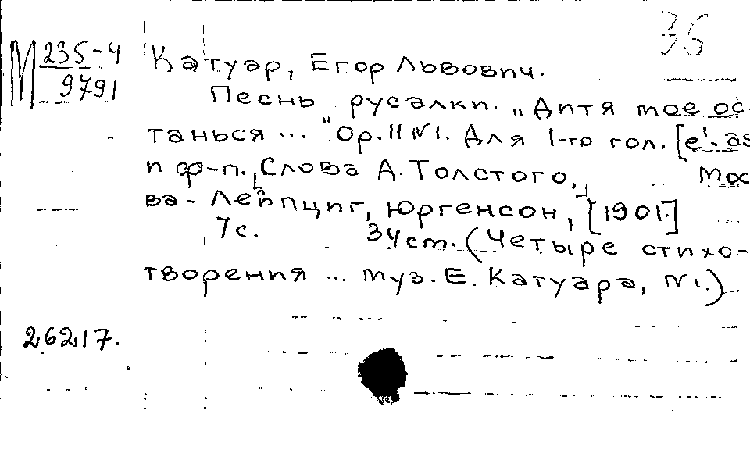 36
М 235-4
9791
Катуар, Егор Львович.
Песнь русалки. „Дитя мое ос-
танься ..." Op. 11 №1. Для 1-го гол. [e'. as
и ф-п. Слова А. Толстого, Мос
ва - Лейпциг, Юргенсон, [1901.]
7 с. 34 cm. (Четыре стихо-
творения ... муз. Е. Катуара, №1.)
26217.